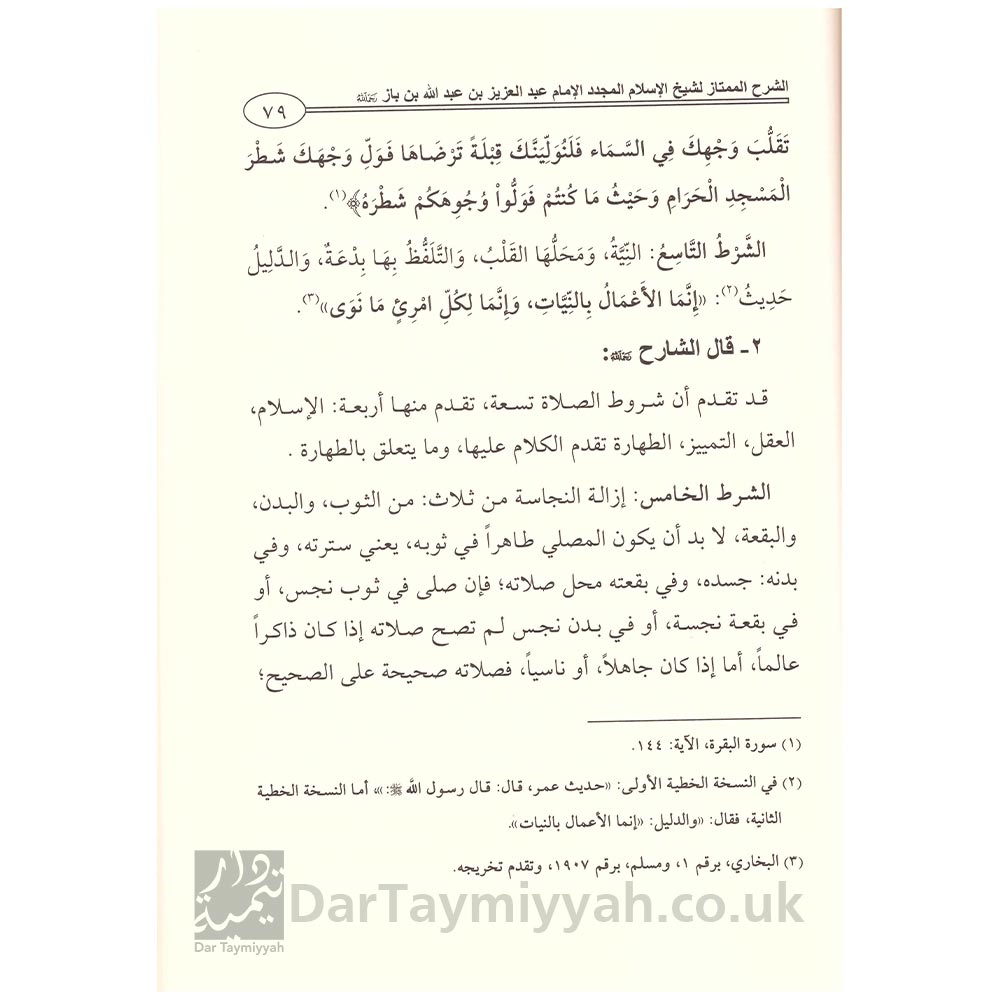 الشرح الممتاز لشيخ الإسلام المجدد الإمام عبد العزيز بن عبد الله بن باز رحمه الله
٧٩
تَقَلُّبَ وَجْهِكَ فِي السَّمَاء فَلَنُوَلِّيَنَّكَ قِبْلَةً تَرْضَاهَا فَوَلِّ وَجْهَكَ شَطْرَ
الْمَسْجِدِ الْحَرَامِ وَحَيْثُ مَا كُنتُمْ فَوَلُّواْ وُجُوِهَكُمْ شَطْرَهُ﴾(١).
الشَّرْطُ التَّاسِعُ: النِّيَّةُ، وَمَحَلُّهَا القَلْبُ، وَالتَّلَفُّظُ بِهَا بِدْعَةٌ، وَالدَّلِيلُ
حَدِيثُ(٢): «إِنَّمَا الأَعْمَالُ بِالنِّيَّاتِ، وَإِنَّمَا لِكُلِّ امْرِئٍ مَا نَوَى»(٣).
٢ ـ قال الشارح رحمه الله:
قد تقدم أن شروط الصلاة تسعة، تقدم منها أربعة: الإسلام،
العقل، التمييز، الطهارة تقدم الكلام عليها، وما يتعلق بالطهارة .
الشرط الخامس: إزالة النجاسة من ثلاث: من الثوب، والبدن،
والبقعة، لا بد أن يكون المصلي طاهراً في ثوبه، يعني سترته، وفي
بدنه: جسده، وفي بقعته محل صلاته؛ فإن صلى في ثوب نجس، أو
في بقعة نجسة، أو في بدن نجس لم تصح صلاته إذا كان ذاكراً
عالماً، أما إذا كان جاهلاً، أو ناسياً، فصلاته صحيحة على الصحيح؛
(١) سورة البقرة، الآية: ١٤٤.
(٢) في النسخة الخطية الأولى: «حديث عمر، قال: قال رسول الله ﷺ:»، أما النسخة الخطية
الثانية، فقال: «والدليل: «إنما الأعمال بالنيات».
(٣) البخاري، برقم ١، ومسلم، برقم ١٩٠٧، وتقدم تخريجه.
دار تيمية
Dar Taymiyyah
DarTaymiyyah.co.uk